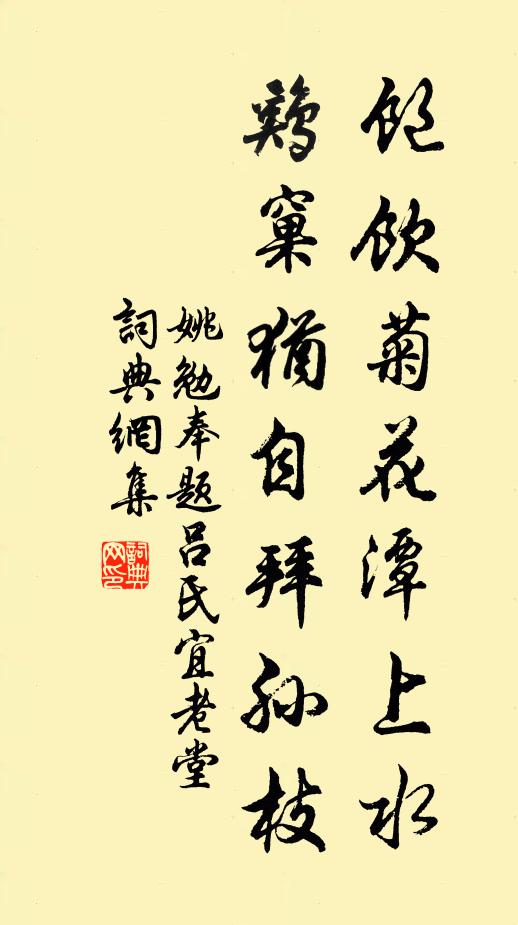 飽飲菊花潭上水
鷄窠猶自拜孫枝
姚勉奉題呂氏宜老堂
詞典網集
詞典网印